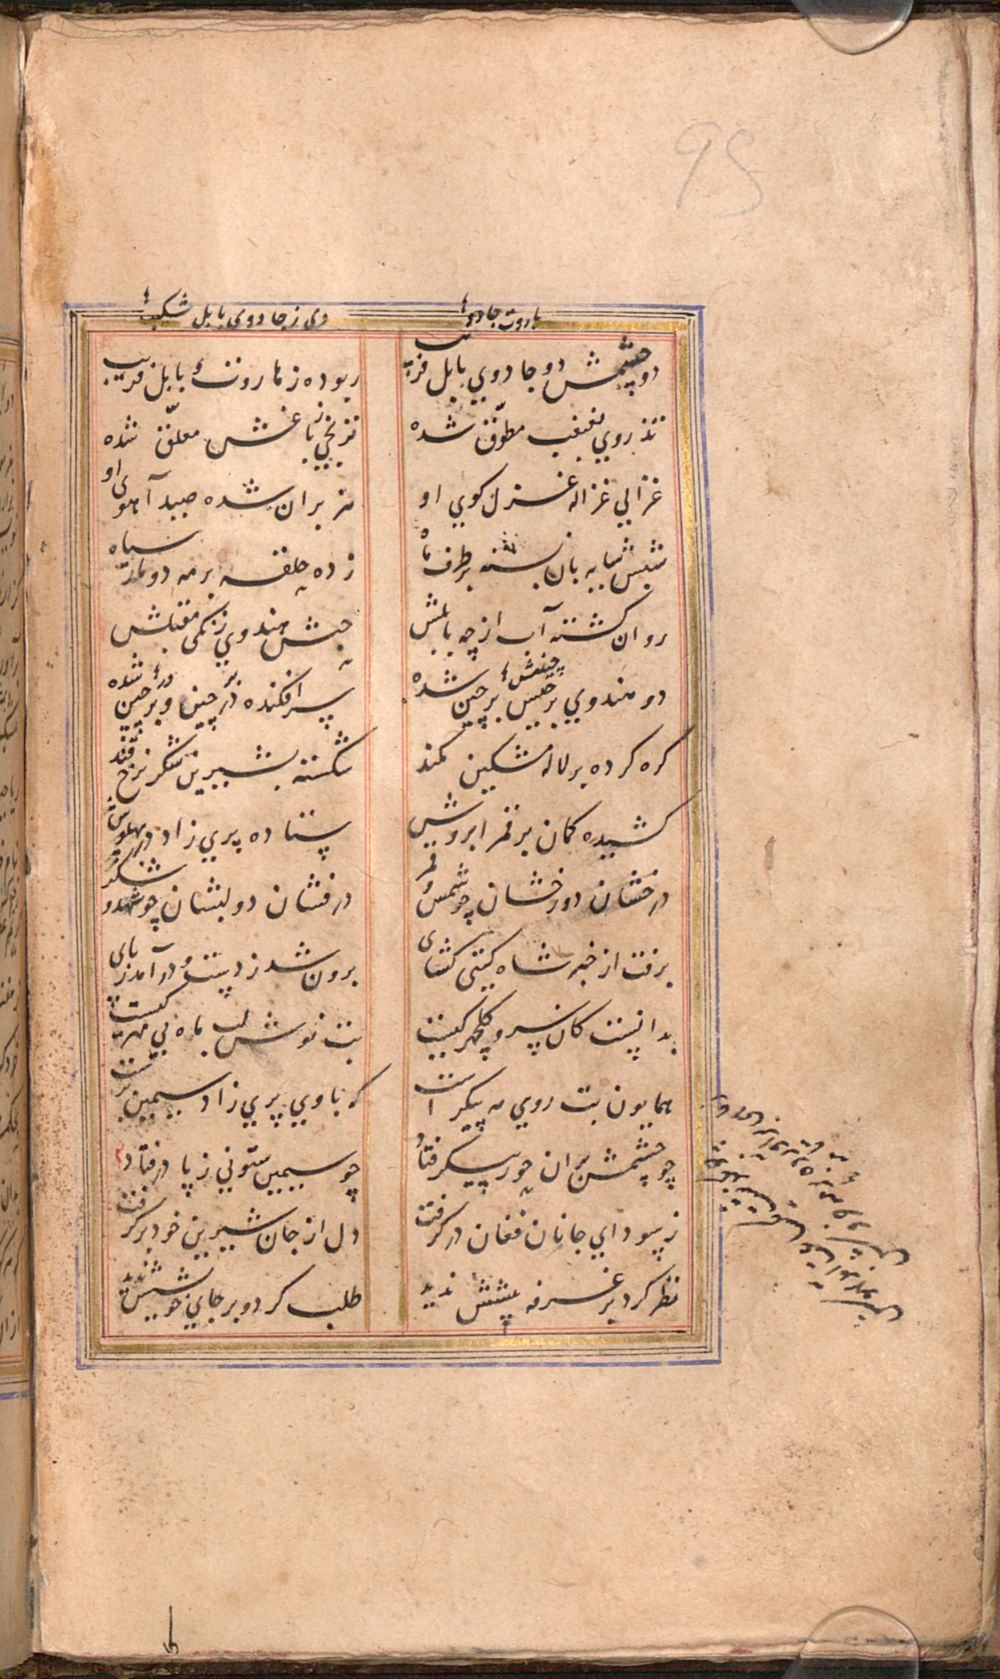 95
هاروت جادو
دی ز جادوی بابل شکیب
دو چشمش دو جادوي بابل فریب
ربوده ز هاروت بابل فریب
تذروي بغبغب مطوّق شده
ترنجي ز باغش معلّق شده
غزالي غزاله غزل کوي او
هزبران شده صید آهوی او
شبش سایه بان بسته بر طرف ماه
زده حلقه بر مه دو مار سیاه
روان کشته آب از چه بابلش
حبش هندوي زنکی مقبلش
چینش
دو هندوي برجیس پرچین شده
سرافکنده در چین و پرچین شده
کره کرده بر لاله مشکین کمند
شکسته بشیرین شکر نرخ قند
کشیده کمان بر قمر ابروش
ستاده پري زاد در پهلوش
درخشان دو رخشان چو شمس و قمر
درفشان دو لبشان چو شهد و شکر
برفت از خبه شاه کیتی کشای
برون شد ز دست و درآمد ز پای
بدانست کان سرو کلچهر کیست
بت نوش لب ماه بی مهر کیست
همایون بت روي مه پیکر است
که باوي پري زاد سیمین بر است
چو چشمش بران حور پیکر فتاد
چو سیمین ستوني ز پا در فتاد
ز سوداي جانان فغان در کرفت
دل از جان شیرین خود بر کرفت
نظر کرد بر غرفه پیشش ندید
طلب کرد و بر جاي خویشش ندید